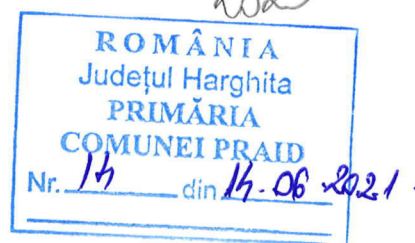 ROMÂNIA
Județul Harghita
PRIMĂRIA
COMUNEI PRAID
Nr. 14 din 14.06.2021